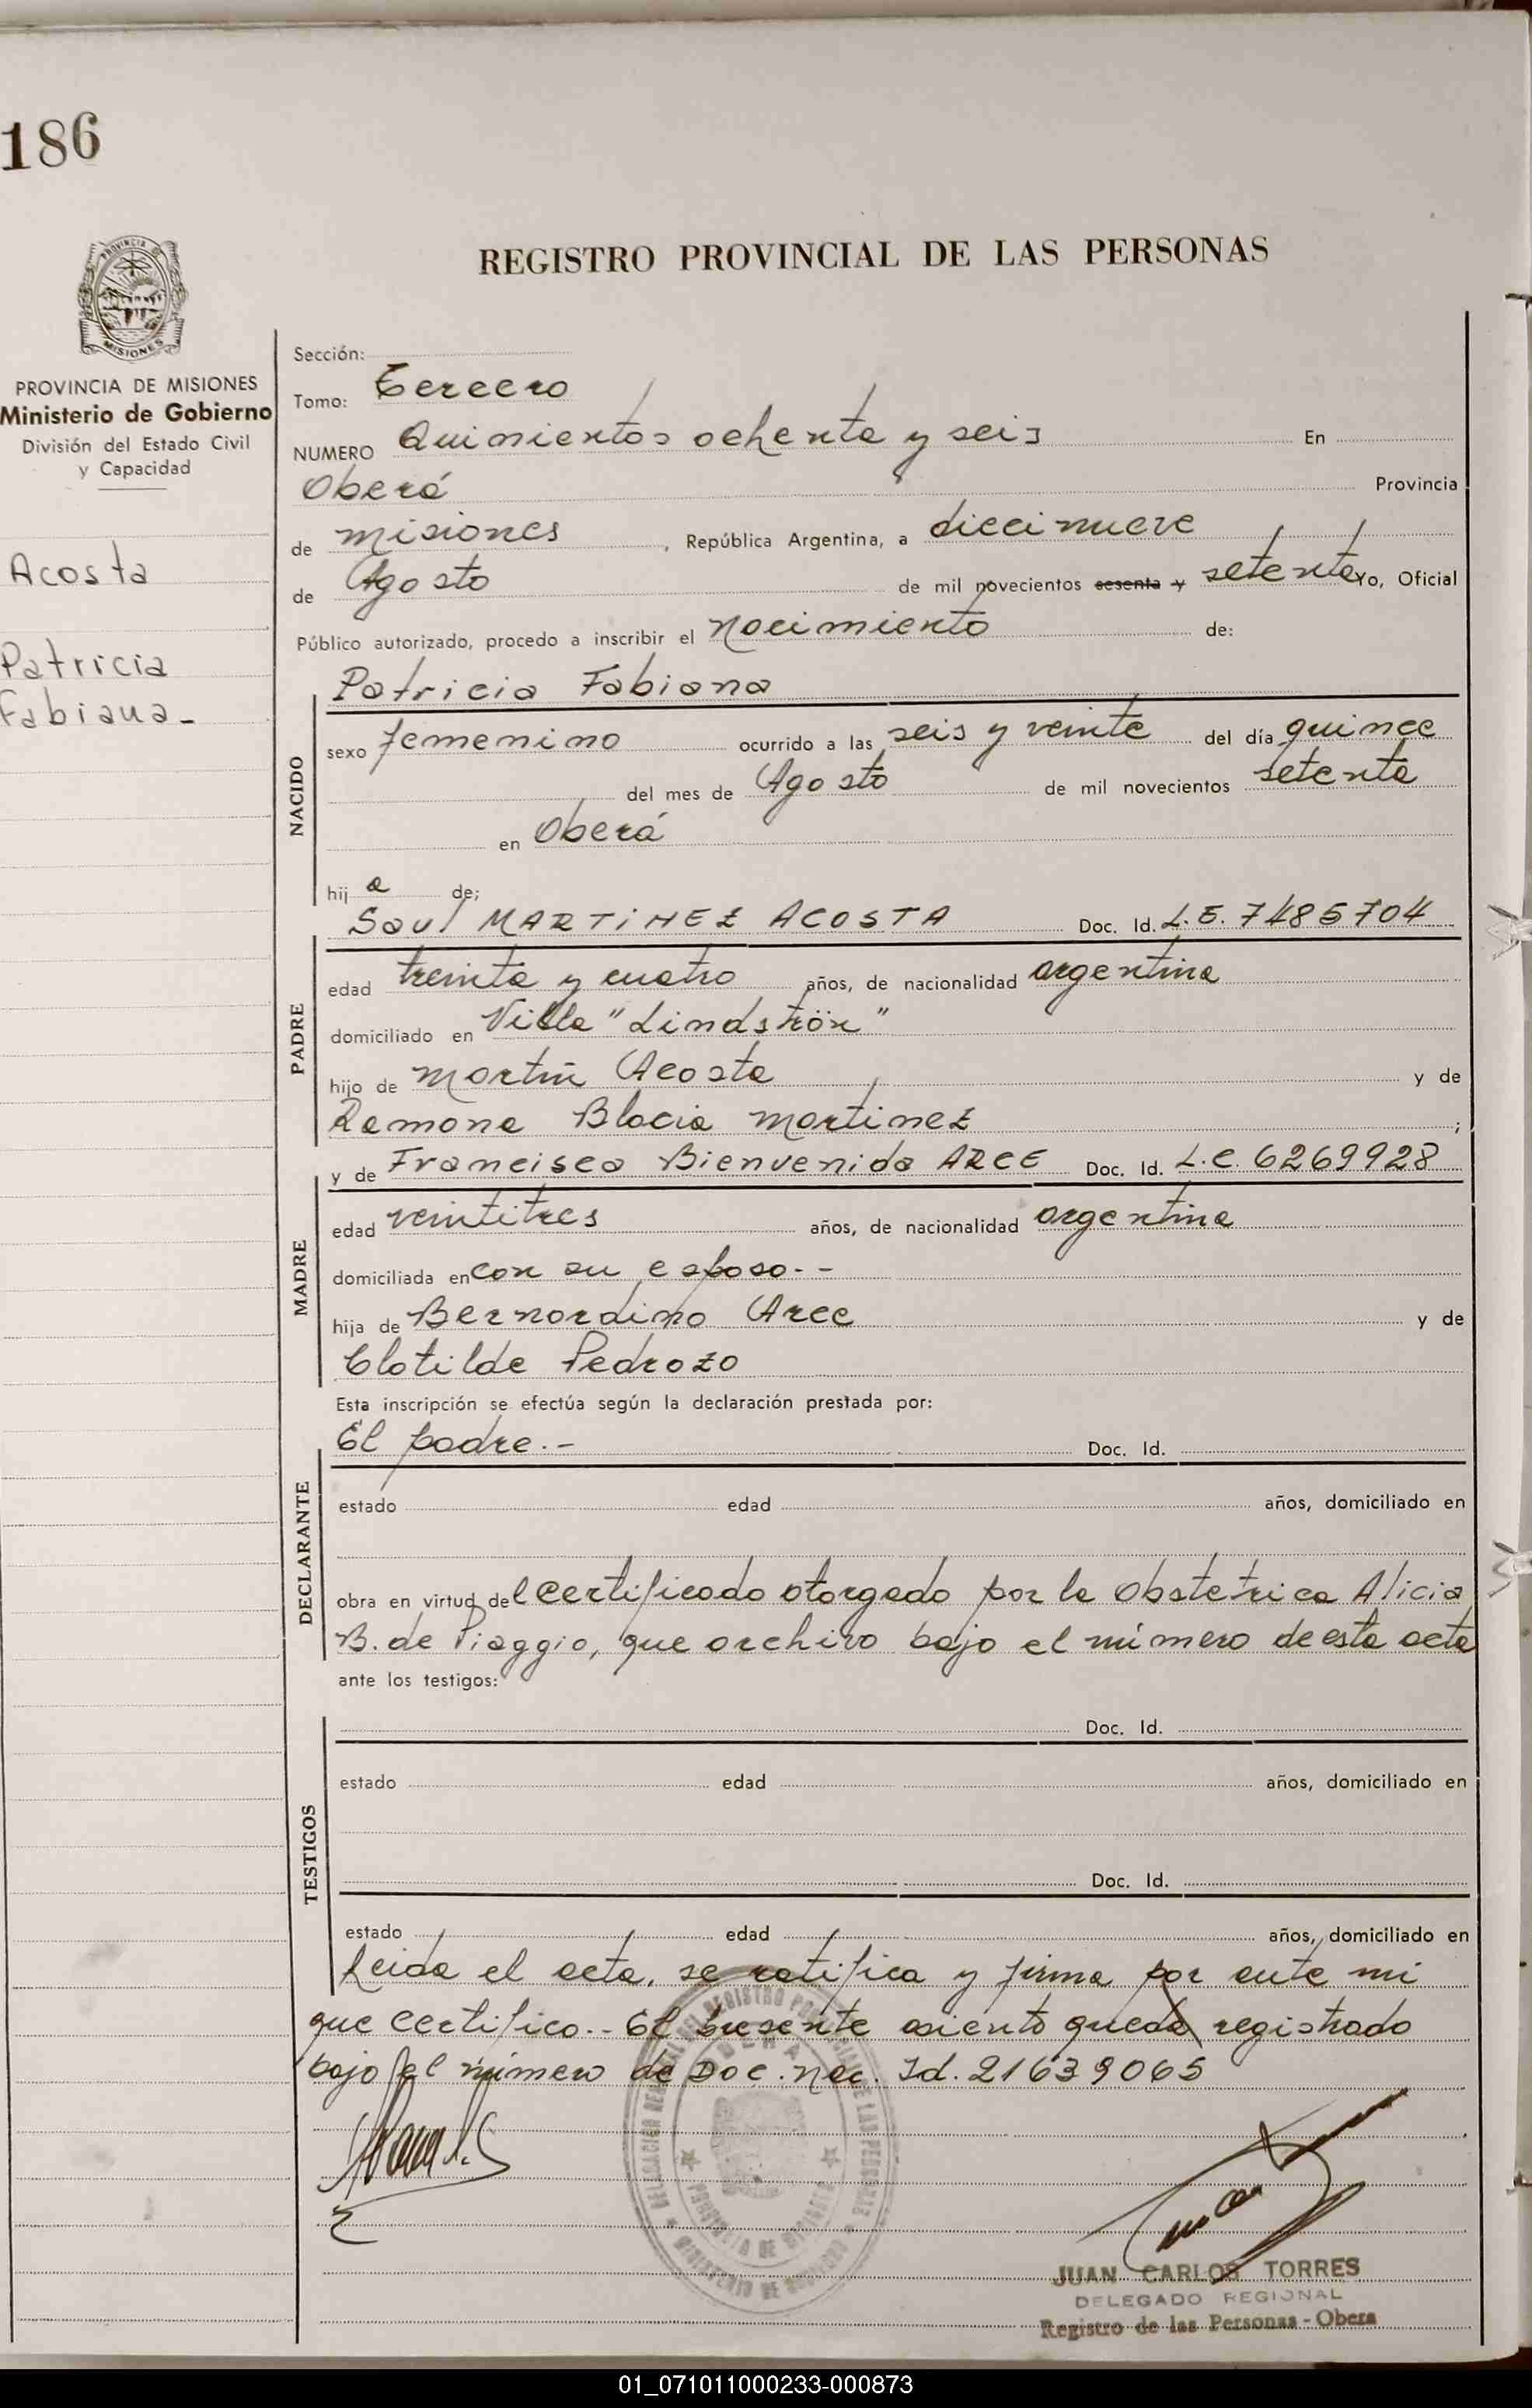 186
REGISTRO PROVINCIAL DE LAS PERSONAS
PROVINCIA DE
MISIONES
PROVINCIA DE MISIONES
Ministerio de Gobierno
División del Estado Civil
y Capacidad
Acosta
Patricia
Fabiana-
Sección:
Tomo: Tercero
NUMERO Quinientos ochenta y seis En
Oberá Provincia
de misiones, República Argentina, a diecinueve
de Agosto de mil novecientos sesenta y setenta Yo, Oficial
Público autorizado, procedo a inscribir el nacimiento de:
Patricia Fabiana
NACIDO
sexo femenino ocurrido a las seis y veinte del día quince
del mes de Agosto de mil novecientos setenta
en Oberá
hija de;
Saul MARTINEZ ACOSTA Doc. Id. L.E. 7485704
PADRE
edad treinta y cuatro años, de nacionalidad argentina
domiciliado en Villa "Lindströn"
hijo de Martin Acosta y de
Ramona Blacia Martinez ;
y de Francisca Bienvenida ARCE Doc. Id. L.C. 6269928
MADRE
edad veintitres años, de nacionalidad argentina
domiciliada en con su esposo.--
hija de Bernardino Arce y de
Clotilde Pedrozo
Esta inscripción se efectúa según la declaración prestada por:
El padre.- Doc. Id.
DECLARANTE
estado edad años, domiciliado en
obra en virtud del certificado otorgado por la Obstetrica Alicia
B. de Piaggio, que archivo bajo el número de esta acta
ante los testigos:
Doc. Id.
TESTIGOS
estado edad años, domiciliado en
Doc. Id.
estado edad años, domiciliado en
Leida el acta, se ratifica y firma por ante mi
que certifico.- El presente asiento queda registrado
bajo el número de Doc. nac. Id. 21639065
JUAN CARLOS TORRES
DELEGADO REGIONAL
Registro de las Personas - Obera
01_071011000233-000873